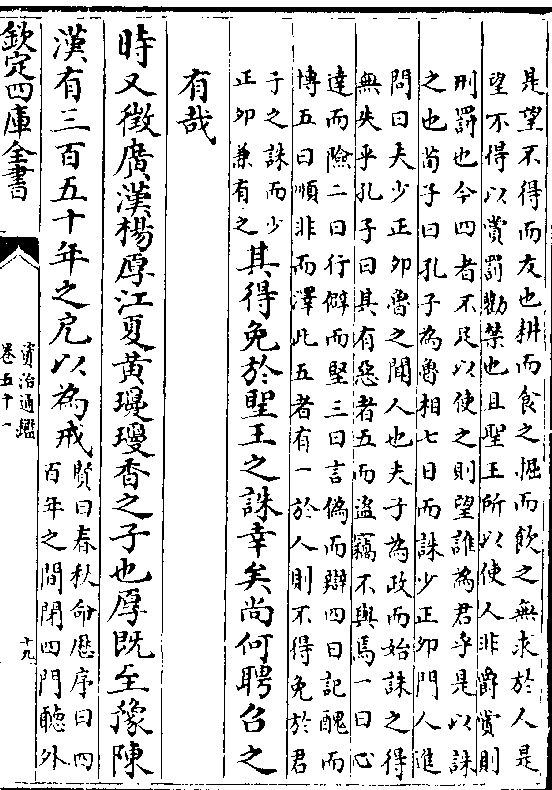 是望不得而友也耕而食之掘而飲之無求於人是
望不得以賞罰勸禁也且聖王所以使人非爵賞則
刑罰也今四者不足以使之則望誰為君乎是以誅
之也荀子曰孔子為魯相七日而誅少正卯門人進
問曰夫少正卯魯之聞人也夫子為政而始誅之得
無失乎孔子曰其有惡者五而盜竊不與焉一曰心
達而險二曰行僻而堅三曰言偽而辯四曰記醜而
博五曰順非而澤此五者有一於人則不得免於君
子之誅而少
正卯兼有之
其得免於聖王之誅幸矣尚何聘召之
有哉
時又徵廣漢楊厚江夏黃瓊瓊香之子也厚既至豫陳
漢有三百五十年之戹以為戒
賢曰春秋命歷序曰四
百年之間閉四門聽外
欽定四庫全書
資治通鑑
卷五十一
十九